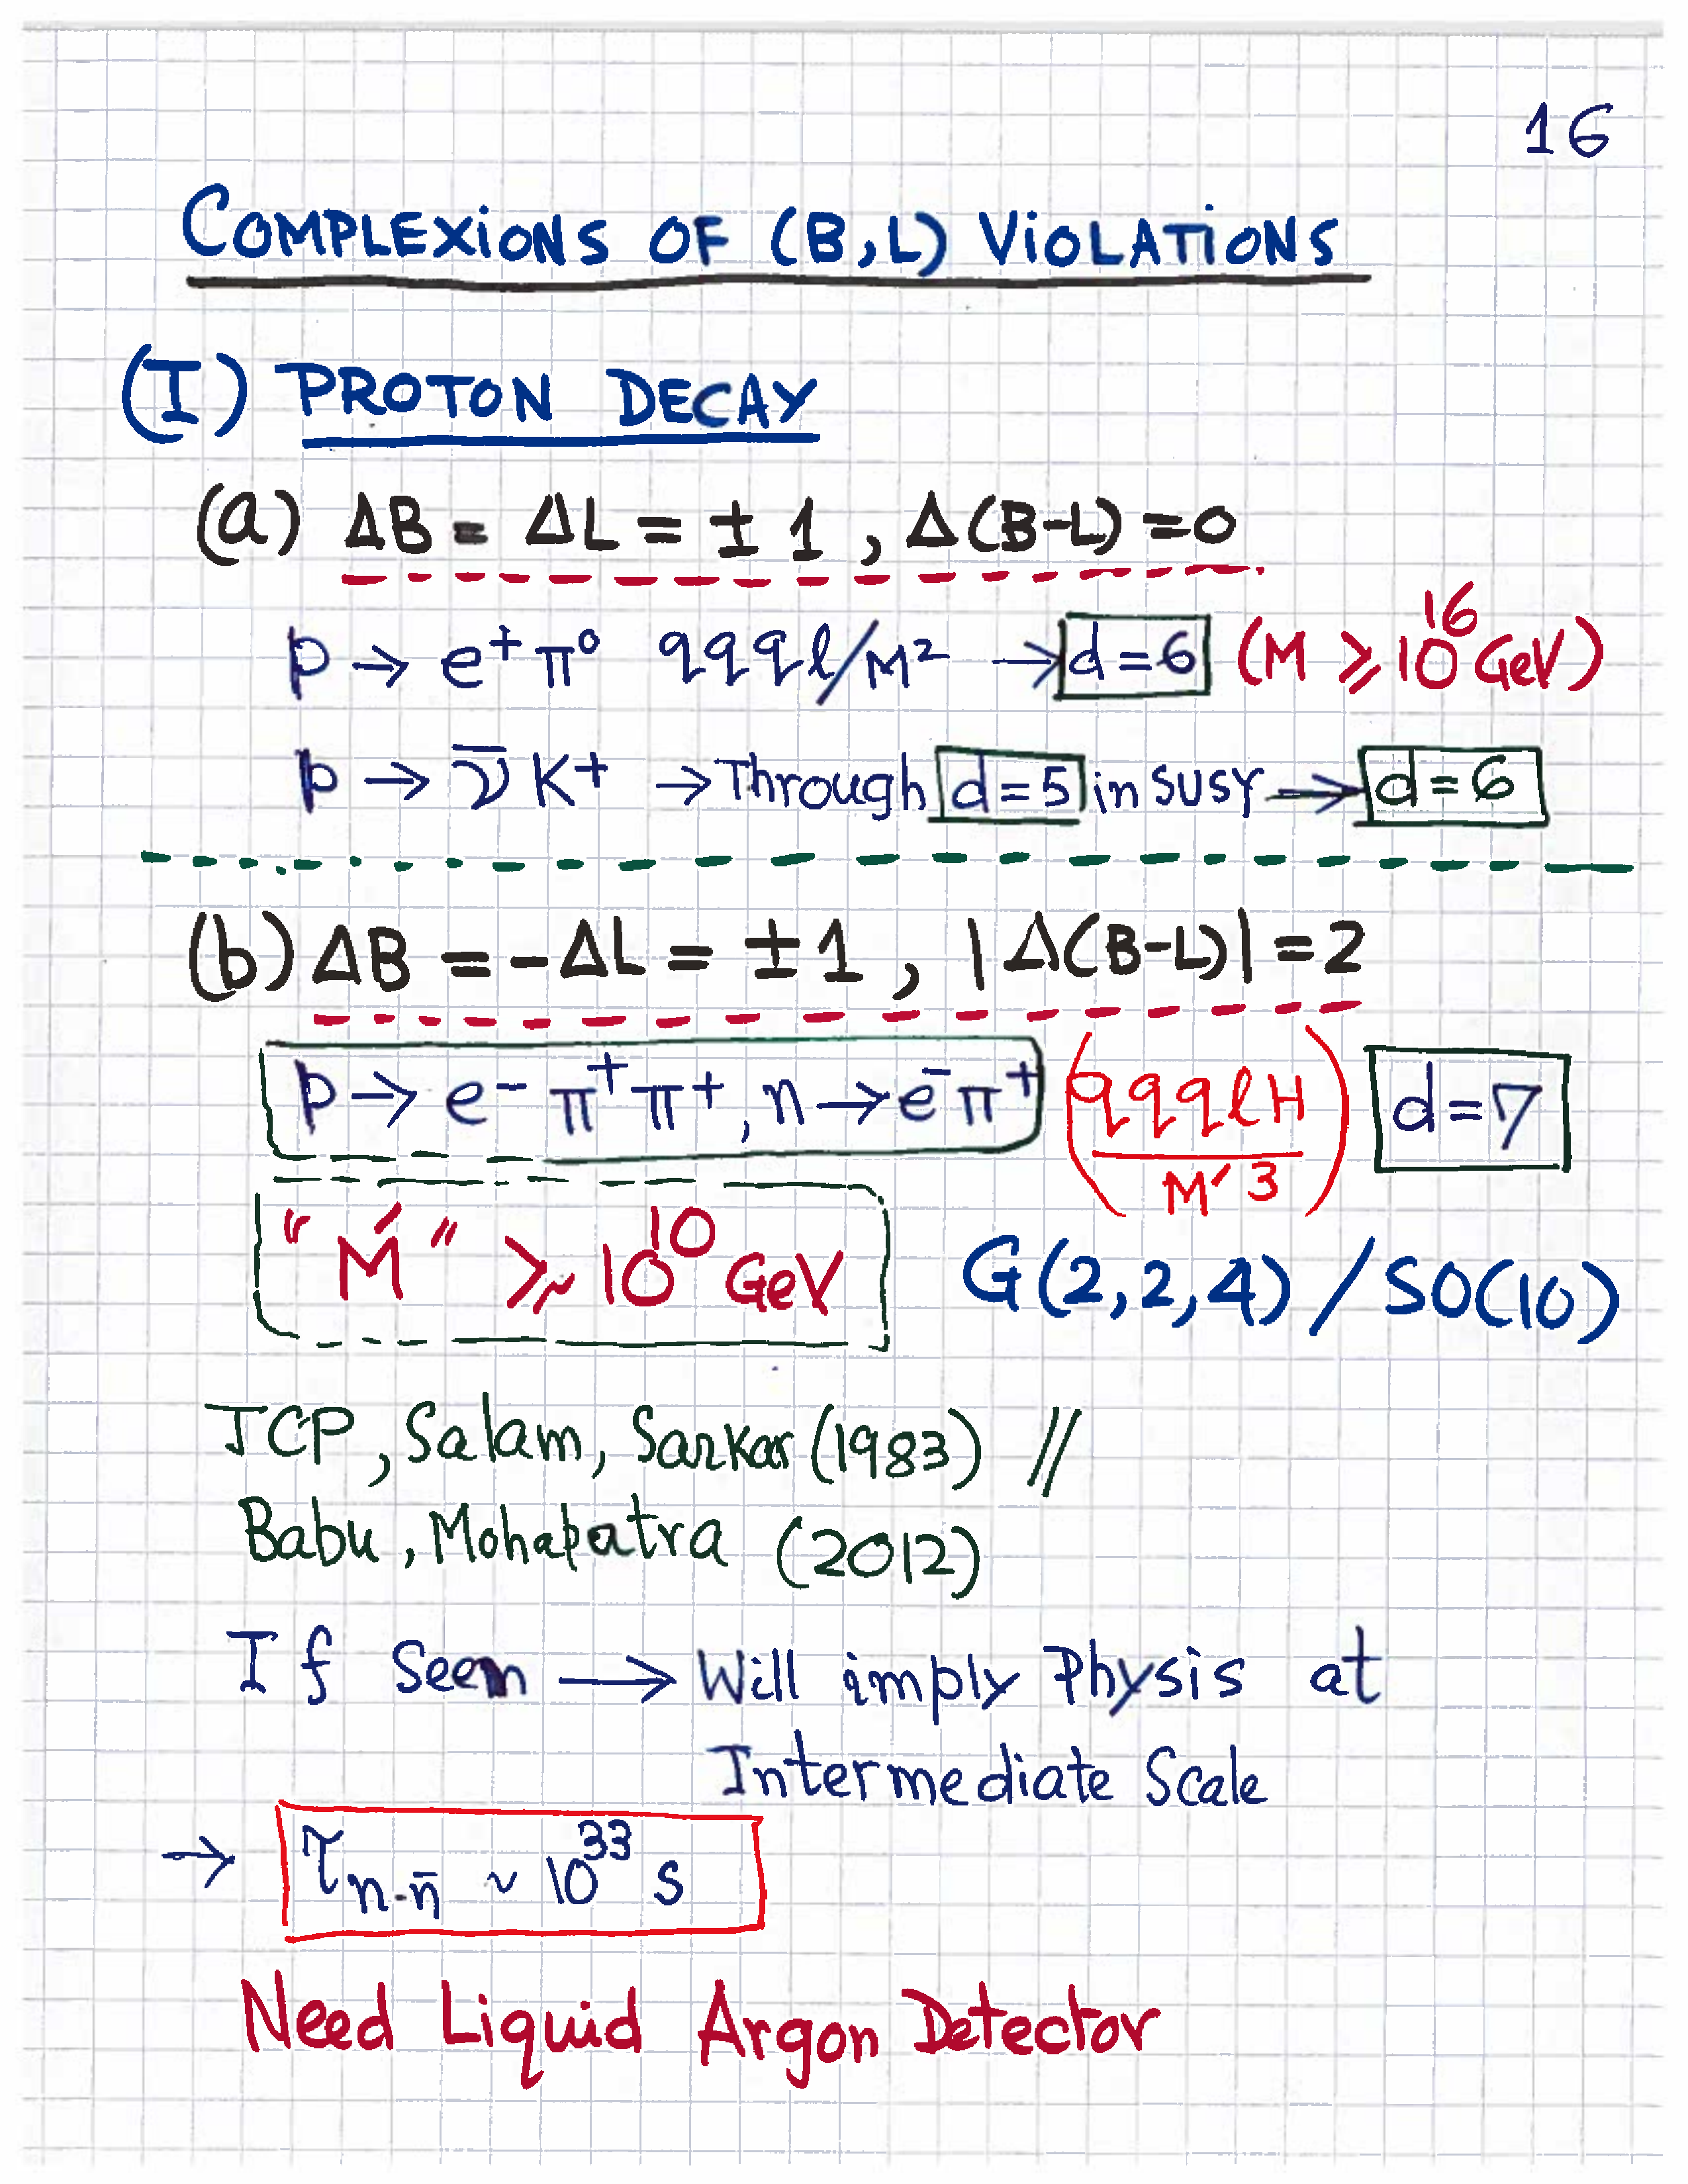 16
COMPLEXIONS OF (B,L) VIOLATIONS
(I) PROTON DECAY
(a) ΔB = ΔL = ± 1 , Δ(B-L) = 0
p → e⁺ π⁰ qqqℓ/M² → d=6 (M ⩾ 10¹⁶ GeV)
p → ν̄ K⁺ → Through d=5 in SUSY → d=6
(b) ΔB = -ΔL = ±1 , |Δ(B-L)| = 2
p → e⁻ π⁺ π⁺, n → e⁻ π⁺ (qqqℓH / M′³) d=7
"M′" ≳ 10¹⁰ GeV G(2,2,4) / SO(10)
JCP, Salam, Sarkar (1983) //
Babu, Mohapatra (2012)
If Seen → Will imply Physis at
Intermediate Scale
→ τₙ₋n̄ ~ 10³³ s
Need Liquid Argon Detector